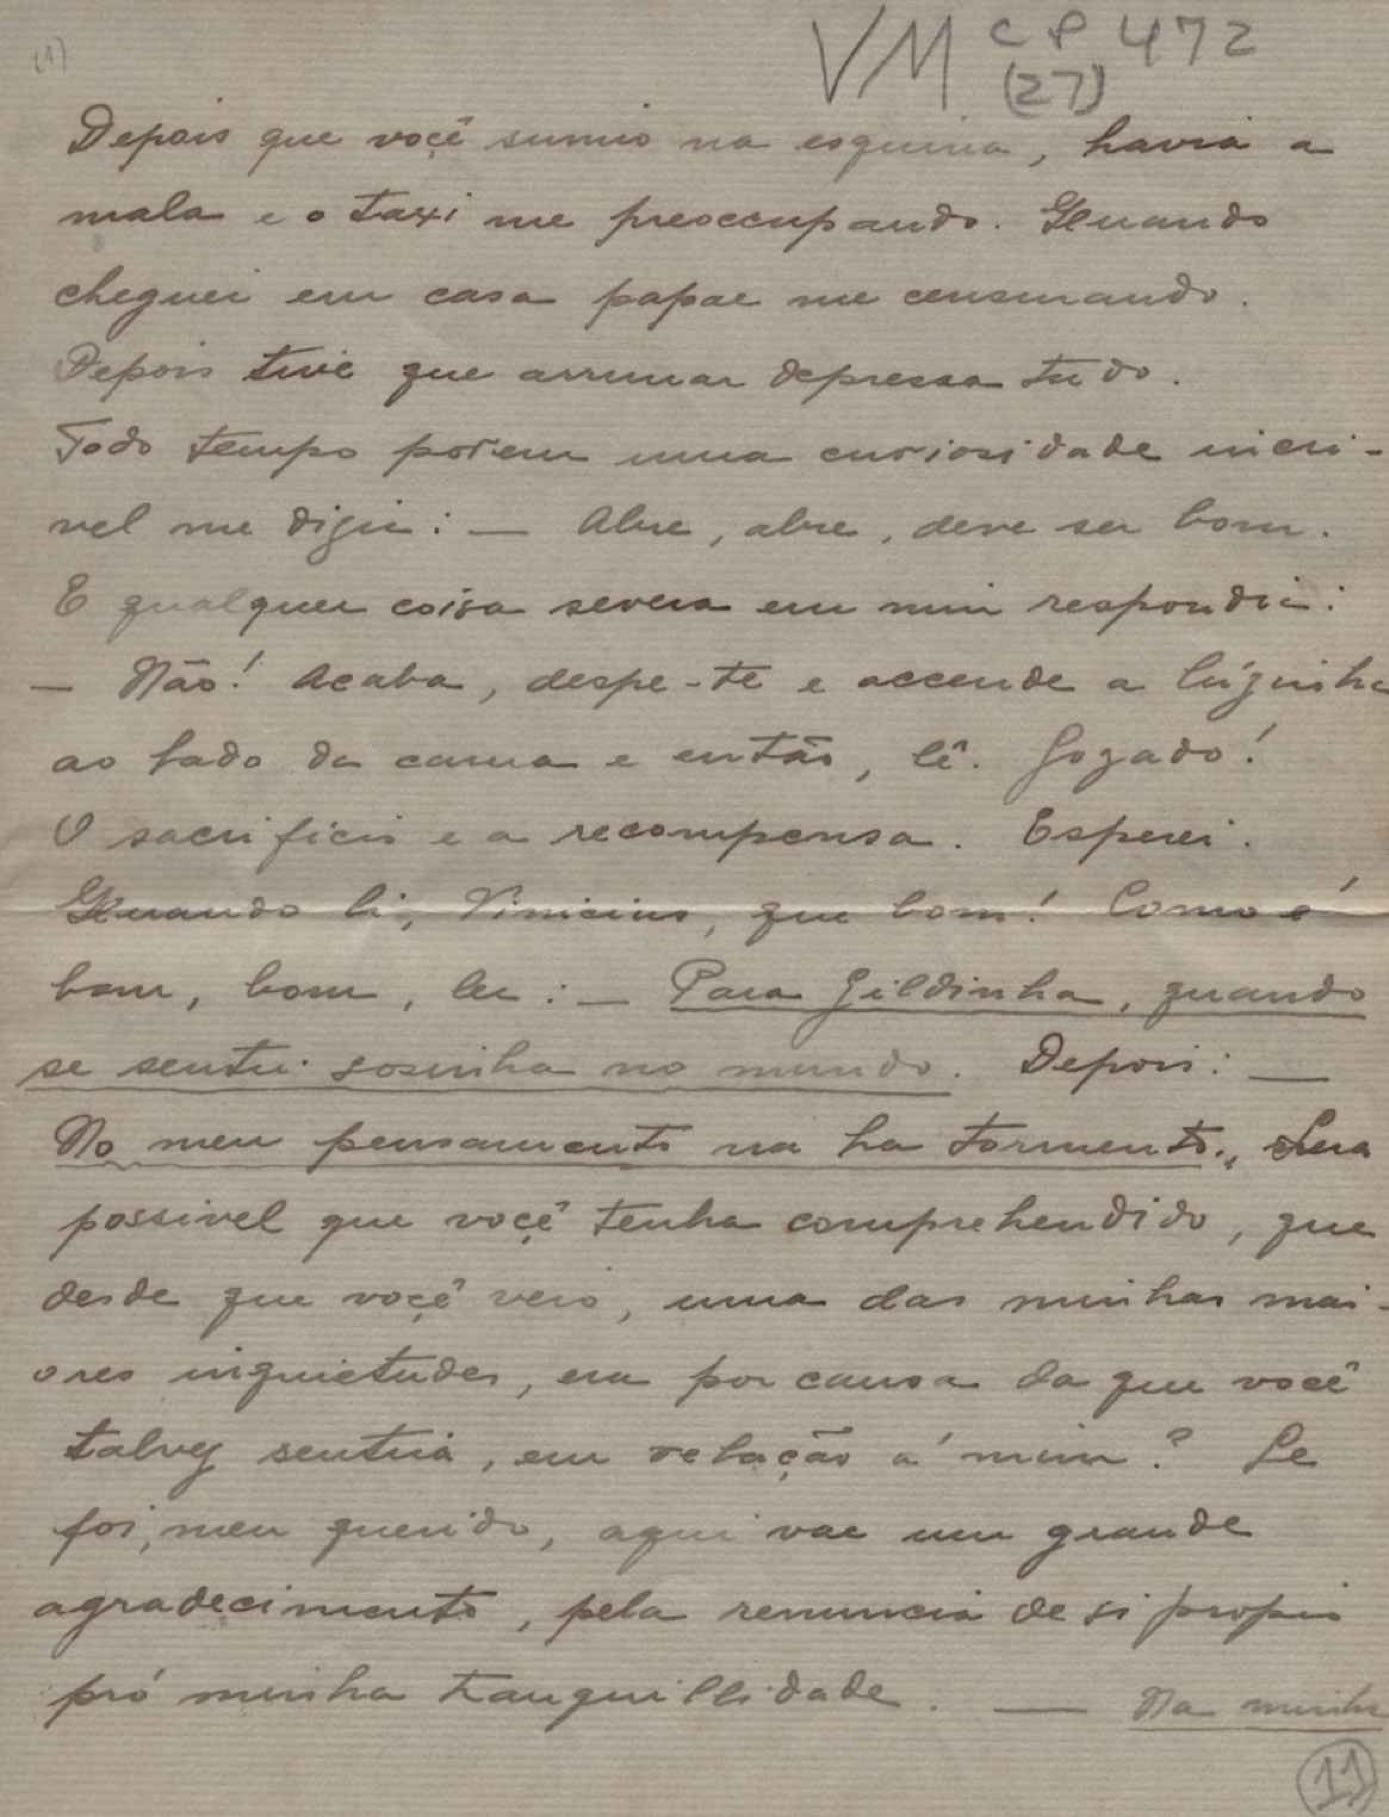 (1)
VM CP 472
(27)
Depois que você sumio na esquina, havia a
mala e o taxi me preoccupando. Quando
cheguei em casa papae me censurando.
Depois tive que arrumar depressa tudo.
Todo tempo porem uma curiosidade incri-
vel me dizia: — Abre, abre, deve ser bom.
E qualquer coisa severa em mim respondia:
— Não! Acaba, despe-te e accende a lúzinha
ao lado da cama e então, lê. Gozado!
O sacrificio e a recompensa. Esperei.
Quando li, Vinicius, que bom! Como é
bom, bom, ler: — Para Gildinha, quando
se sentir sosinha no mundo. Depois: —
No meu pensamento na ha tormento. Sera
possivel que você tenha comprehendido, que
desde que você veio, uma das minhas mai-
ores inquietudes, era por causa da que você
talvez sentia, em relação á mim? Se
foi, meu querido, aqui vae um grande
agradecimento, pela renuncia de si propio
pró minha tranquillidade. — Na minha
11